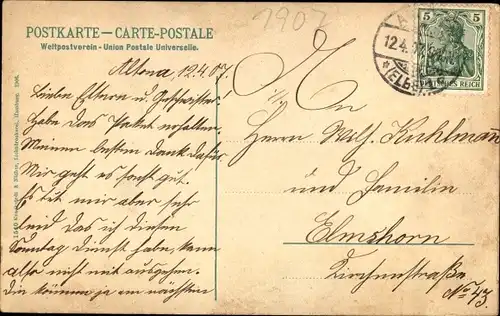 1907
POSTKARTE — CARTE-POSTALE
Weltpostverein - Union Postale Universelle.
Altona 12.4.07.
Liebe Eltern u. Geschwister!
Habe das Paket erhalten,
Meinen besten Dank dafür.
Mir geht es sonst gut.
Es tut mir aber sehr
leid das ich diesen
Sonntag Dienst habe, kann
also nicht mit ausgehen.
Die kommen ja am nächsten
An
Herrn Wilh. Kuhlman
und Familie
Elmshorn
Kirchenstraße
No 43.
12.4.07
(ELBE)
5 5
DEUTSCHES REICH